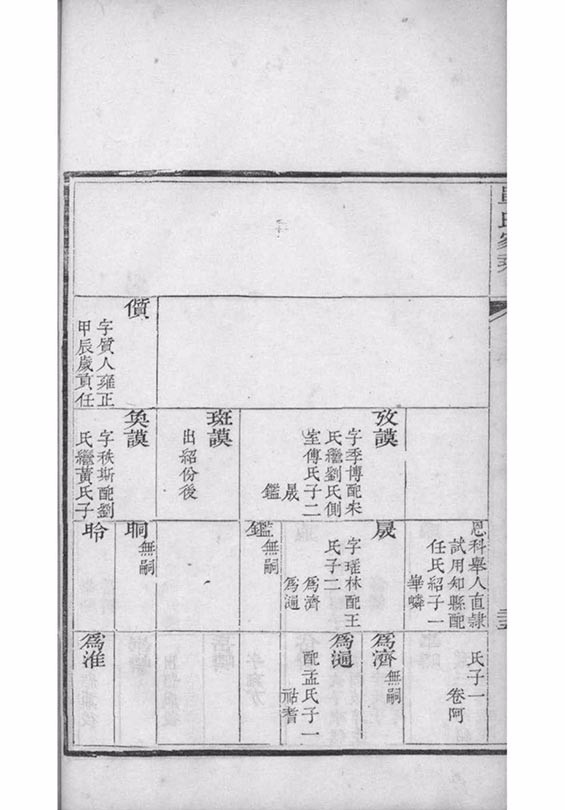 單氏家乘
恩科舉人直隸
試用知縣配
任氏紹子一
華嶙
氏子一
卷阿
攷謨
字季博配宋
氏繼劉氏側
室傅氏子二
晟
鑑
晟
字瑾林配王
氏子二
為濟
為通
為濟
無嗣
為通
配孟氏子一
祜耆
斑謨
出紹份後
鑑
無嗣
儥
字質人雍正
甲辰歲貢任
奐謨
字秩斯配劉
氏繼黃氏子
眮
無嗣
昤
為淮